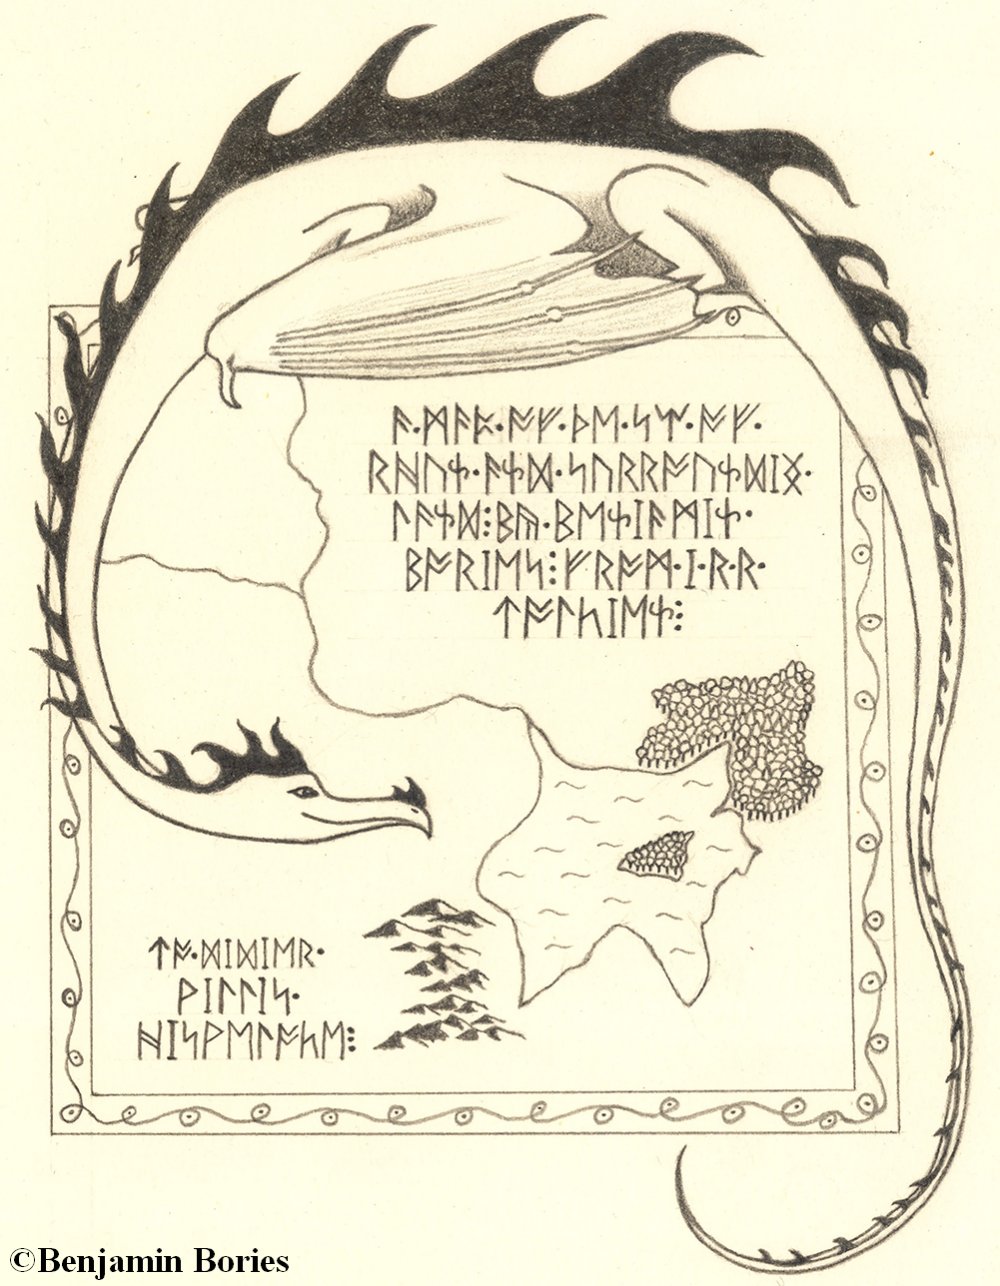 ᚪ·ᛗᚪᛈ·ᚩᚠ·ᚦᛖ·ᛋᛠ·ᚩᚠ·
ᚱᚻᚢᚾ·ᚪᚾᛞ·ᛋᚢᚱᚱᚩᚢᚾᛞᛁᛝ·
ᛚᚪᚾᛞ⁝ᛒᚣ·ᛒᛖᚾᛁᚪᛗᛁᚾ·
ᛒᚩᚱᛁᛖᛋ⁝ᚠᚱᚩᛗ·ᛁ·ᚱ·ᚱ·
ᛏᚩᛚᛱᛁᛖᚾ⁝
ᛏᚩ·ᛞᛁᛞᛁᛖᚱ·
ᚹᛁᛚᛚᛁᛋ·
ᚻᛁᛋᚹᛖᛚᚩᛱᛖ⁝
©Benjamin Bories